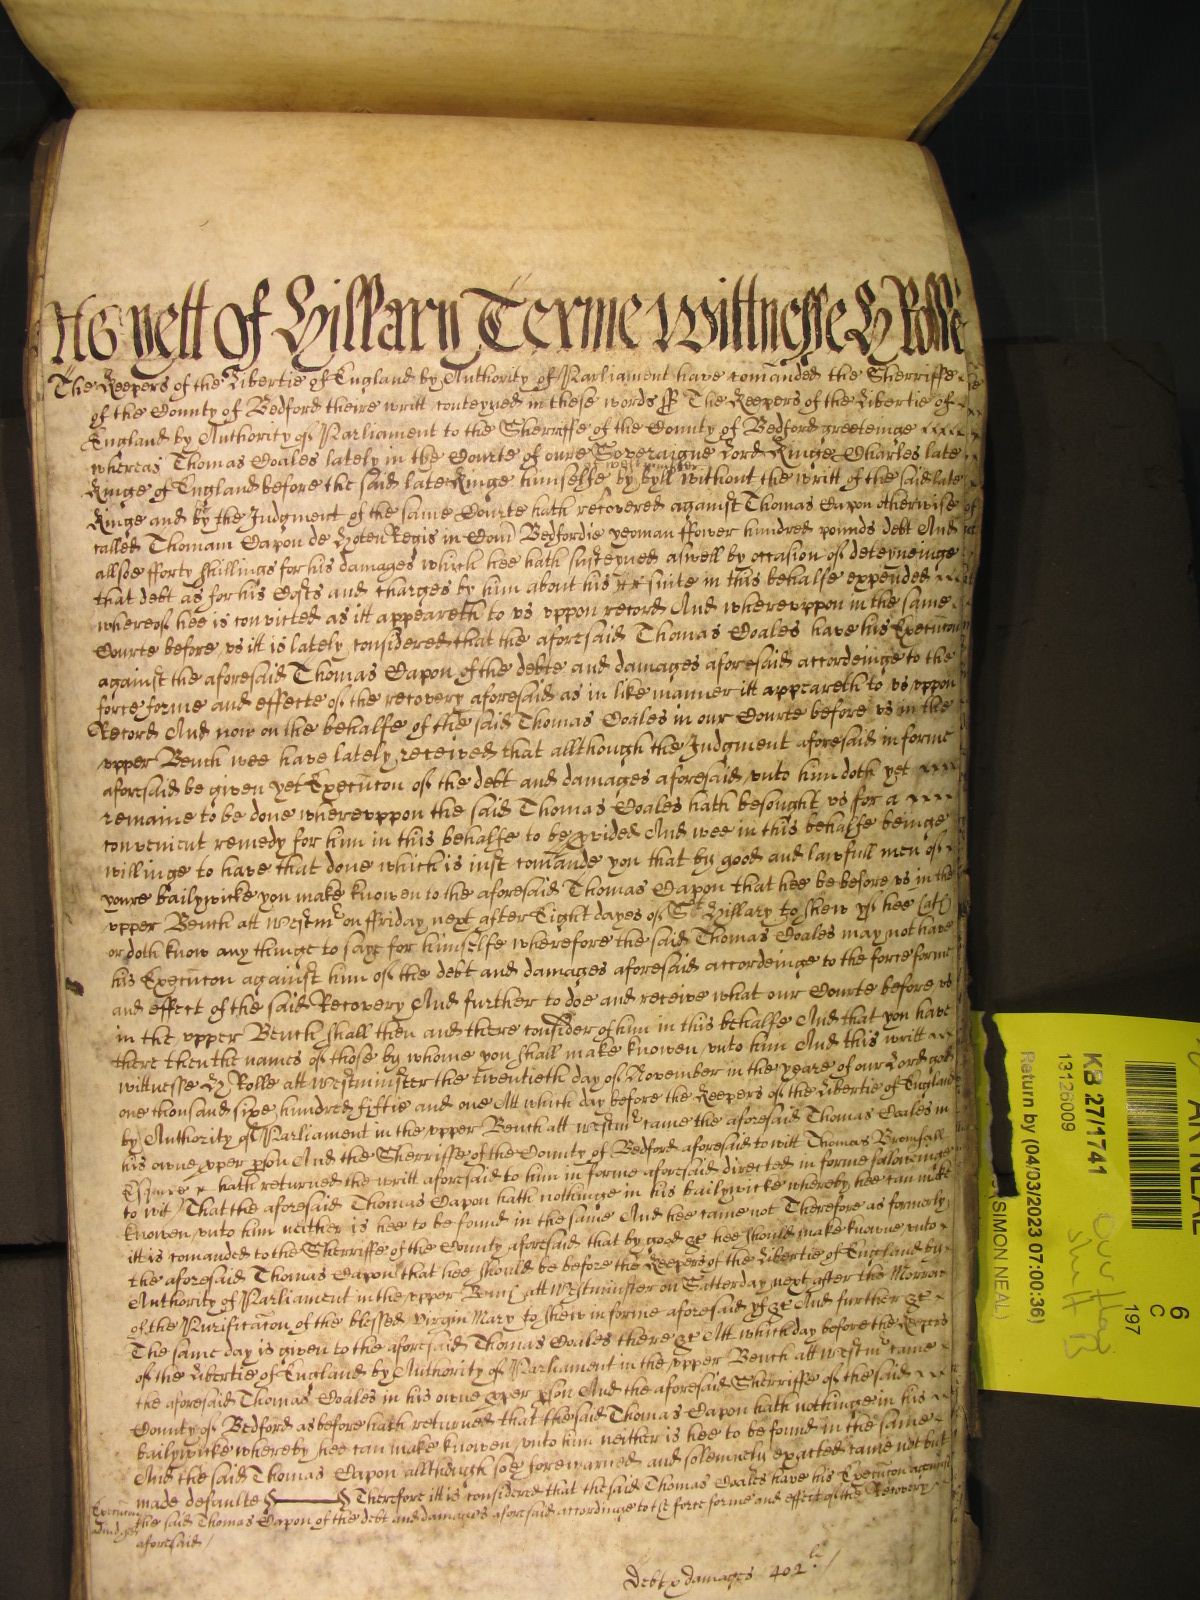 As yett of Hillary Terme Wittnesse H Rolle
The Keepers of the Libertie of England by Authority of Parliament have comanded the Sherriffe
of the County of Bedford theire writt conteyned in these words ss The Keepers of the Libertie of
England by Authority of Parliament to the Sherriffe of the County of Bedford greeteinge
whereas Thomas Coales lately in the Courte of oure Soveraigne Lord Kinge Charles late
Kinge of England before the said late Kinge himselfe by byll without the writt of the said late
Kinge and by the Judgment of the same Courte hath recovered against Thomas Capon otherwise
called Thomam Capon de Hoten Regis in Com Bedfordie yeoman ffower hundred pounds debt And
allsoe fforty shillings for his damages which hee hath susteyned aswell by occasion of deteyneinge
that debt as for his Costs and charges by him about his suite in this behalfe expended
whereof hee is convicted as itt appeareth to us uppon record And whereuppon in the same
Courte before us itt is lately considered that the aforesaid Thomas Coales have his Execucon
against the aforesaid Thomas Capon of the debte and damages aforesaid accordeinge to the
force forme and effecte of the recovery aforesaid as in like manner itt appeareth to us uppon
Record And now on the behalfe of the said Thomas Coales in our Courte before us in the
upper Bench wee have lately received that allthough the Judgment aforesaid in forme
aforesaid be given yet Execucon of the debt and damages aforesaid unto him doth yet
remaine to be done whereuppon the said Thomas Coales hath besought us for a
convenient remedy for him in this behalfe to be pvided And wee in this behalfe beinge
willinge to have that done which is just comande you that by good and lawfull men of
youre bailywicke you make knowen to the aforesaid Thomas Capon that hee be before us in the
upper Bench att Westmr on ffriday next after Eight dayes of St Hillary to shew yf hee hath
or doth know any thinge to saye for himselfe wherefore the said Thomas Coales may not have
his Execucon against him of the debt and damages aforesaid accordeinge to the force forme
and effect of the said Recovery And further to doe and receive what our Courte before us
in the upper Bench shall then and there consider of him in this behalfe And that you have
there then the names of those by whome you shall make knowen unto him And this writt
wittnesse H Rolle att Westminster the twentieth day of November in the yeare of our Lord god
one thousand sixe hundred fiftie and one Att which day before the Keepers of the Libertie of England
by Authority of Parliament in the upper Bench att Westmr came the aforesaid Thomas Coales in
his owne pper pson And the Sherriffe of the County of Bedford aforesaid to witt Thomas Bromsall
hath returned the writt aforesaid to him in forme aforesaid directed in forme followeinge
to wit That the aforesaid Thomas Capon hath nothinge in his bailywicke whereby hee can make
knowen unto him neither is hee to be found in the same And hee came not Therefore as formerly
itt is comanded to the Sherriffe of the County aforesaid that by good &c hee should make knowne unto
the aforesaid Thomas Capon that hee should be before the Keepers of the Libertie of England by
Authority of Parliament in the upper Bench att Westminster on Satterday next after the Morrow
of the Purificacon of the blessed virgin Mary to shew in forme aforesaid yf &c And further &c
The same day is given to the aforesaid Thomas Coales there &c Att which day before the Keepers
of the Libertie of England by Authority of Parliament in the upper Bench att Westmr came
the aforesaid Thomas Coales in his owne pper pson And the aforesaid Sherriffe of the said
County of Bedford as before hath returned that the said Thomas Capon hath nothinge in his
bailywicke whereby hee can make knowen unto him neither is hee to be found in the same
And the said Thomas Capon allthough soe forewarned and solemnely exacted came not but
made defaulte Therefore itt is considered that the said Thomas Coales have his Execucon against
the said Thomas Capon of the debt and damages aforesaid accordinge to the force forme and effect of the Recovery
aforesaid
Debt & damages 402li
KB 27/1741
13126009
Return by (04/03/2023 07:00:36)
(SIMON NEAL)
6
C
197